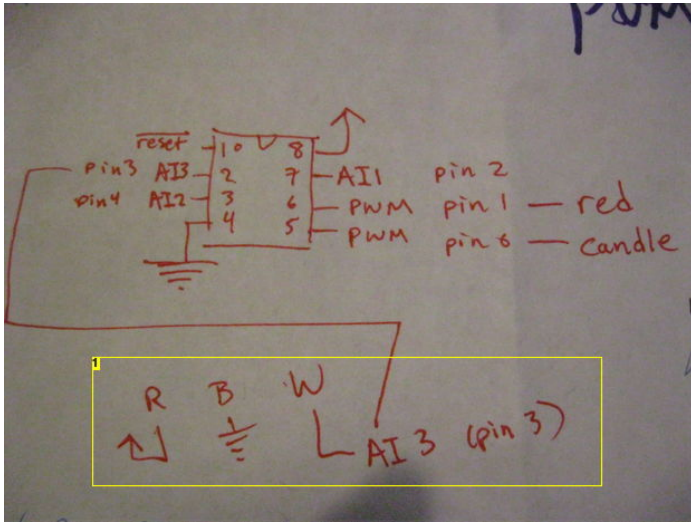 PWM
reset 10 8
pin3 AI3 2 7 AI1 pin 2
pin4 AI2 3 6 PWM pin 1 — red
4 5 PWM pin 0 — candle
1
R B W
AI 3 (pin 3)